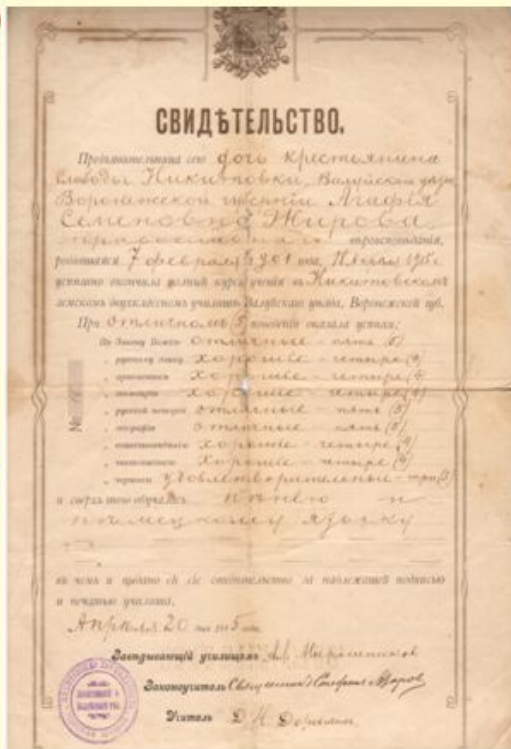 СВИДѢТЕЛЬСТВО.
Предъявительница сего дочь крестьянина
слободы Никитовки, Валуйскаго уѣзда
Воронежской губерніи Агафья
Семеновна Жирова,
православнаго вѣроисповѣданія,
родившаяся 7 февраля 1901 года,
успѣшно окончила полный курсъ ученія въ Никитовскомъ
земскомъ двухклассномъ училищѣ Валуйскаго уѣзда, Воронежской губ.
При отличномъ (5) поведеніи оказала успѣхи:
По Закону Божію отличные – пять (5)
„ русскому языку хорошіе – четыре (4)
„ ариѳметикѣ хорошіе – четыре (4)
„ хорошіе – четыре (4)
„ русской исторіи отличные – пять (5)
„ географіи отличные – пять (5)
„ хорошіе – четыре (4)
„ чистописанію хорошіе – четыре (4)
„ черченію удовлетворительные – три (3)
и сверхъ того обучалась пѣнію и
нѣмецкому языку
въ чемъ и выдано ей сіе свидѣтельство за надлежащей подписью
и печатью училища.
Апрѣля 20 дня 1915 года.
Завѣдывающій училищемъ
Законоучитель Священникъ
Учитель Д. И.